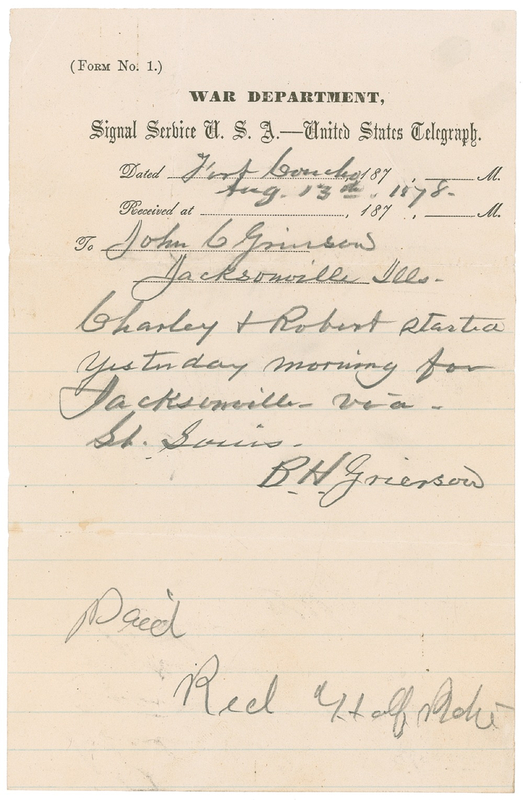 (Form No. 1.)
WAR DEPARTMENT,
Signal Service U. S. A.—United States Telegraph.
Dated Fort Concho, 187 , M.
Aug. 13th, 1878-
Received at , 187 , M.
To John C Grierson
Jacksonville Ills-
Charley & Robert started
yesterday morning for
Jacksonville- via-
St. Louis-
B. H. Grierson
Paid
Red Half Rate